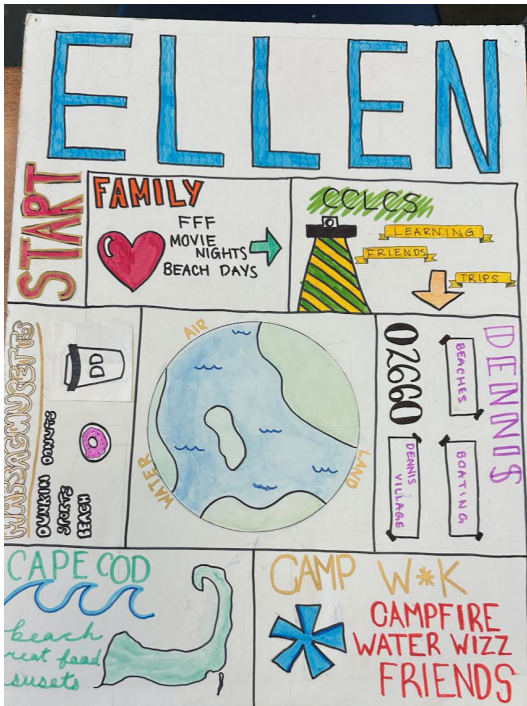 ELLEN
START
FAMILY
FFF
MOVIE
NIGHTS
BEACH DAYS
CCLCS
LEARNING
FRIENDS
TRIPS
MASSACHUSETTS
DD
DUNKIN DONUTS
SPORTS
BEACH
AIR
WATER
LAND
DENNIS
02660
BEACHES
BOATING
DENNIS
VILLAGE
CAPE COD
beach
great food
sunsets
CAMP W*K
CAMPFIRE
WATER WIZZ
FRIENDS